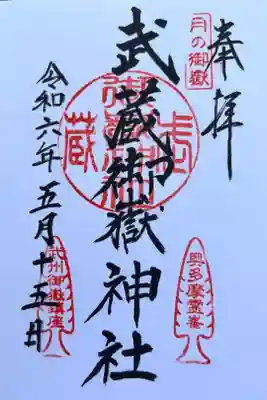 奉拝
月の御嶽
武蔵御嶽神社
武蔵
奥多摩霊峯
武州御嶽鎮座
令和六年五月十五日